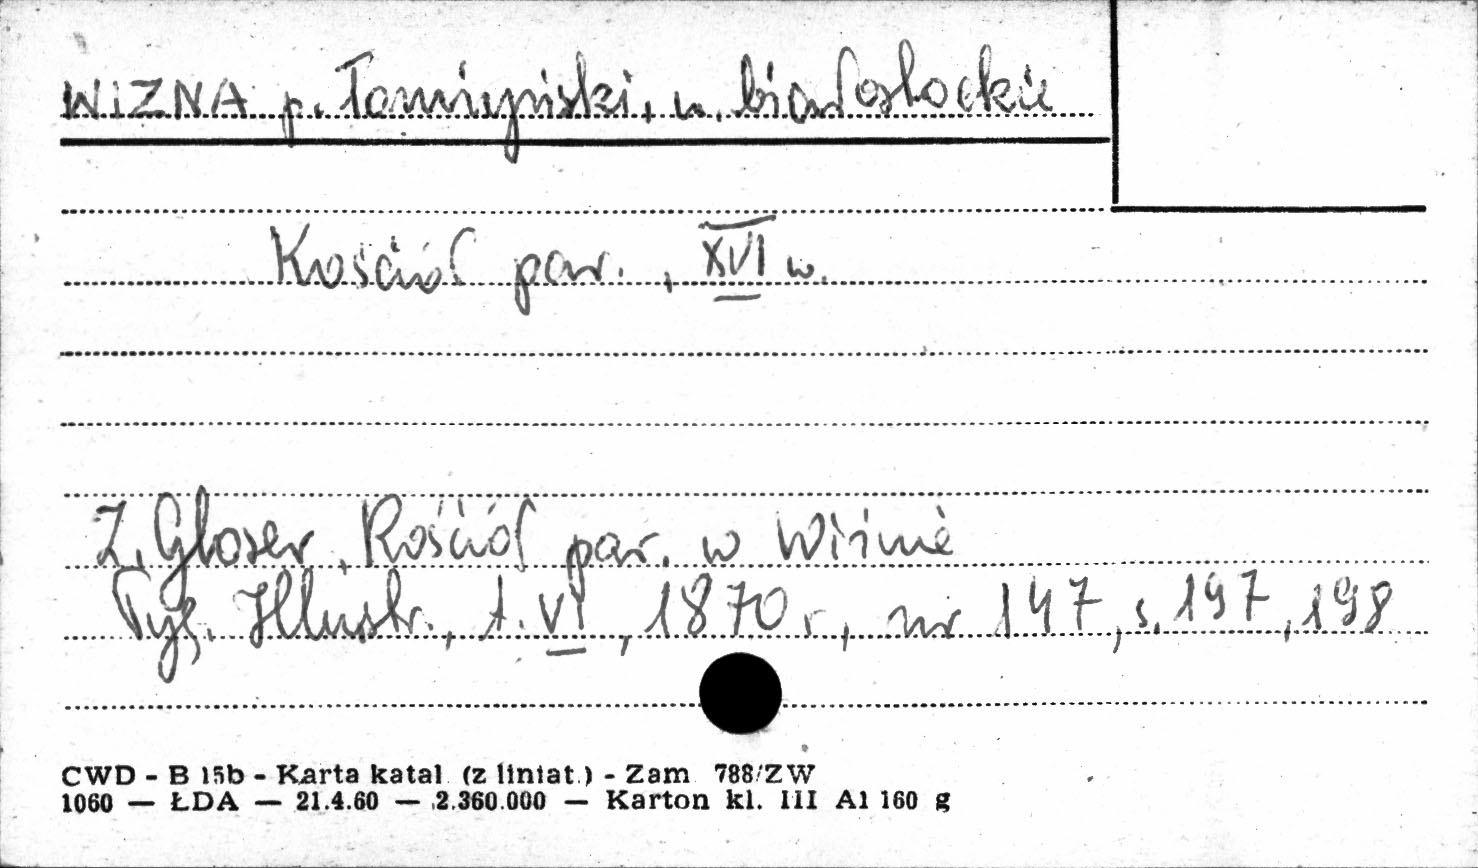 WIZNA p. Łomżyński, w. białostockie
Kościół par., XVI w.
Z. Gloger, Kościół par. w Wiźnie
Tyg. Illustr., t. VI, 1870 r, nr 147, s. 197, 198
CWD - B 15b - Karta katal. (z liniat.) - Zam 788/ZW
1060 — ŁDA — 21.4.60 — 2.360.000 — Karton kl. III A1 160 g